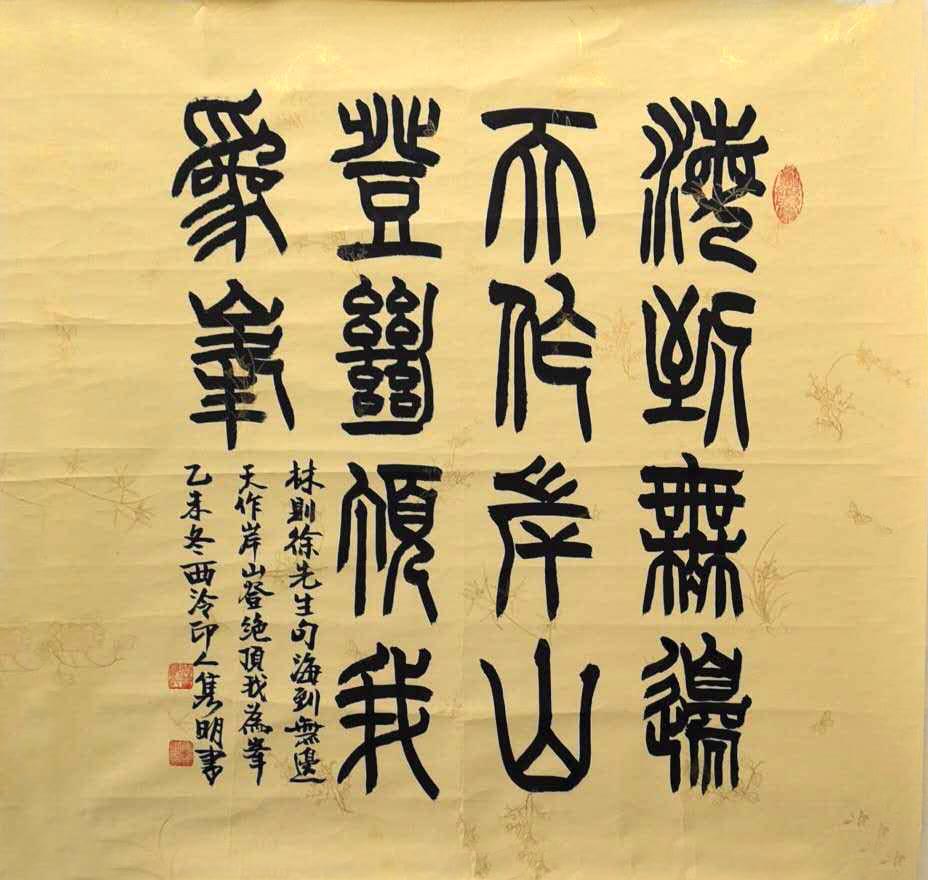 海到無邊
天作岸山
登絶頂我
為峯
林則徐先生句海到無邊
天作岸山登絶頂我為峯
乙未冬西泠印人隽明书